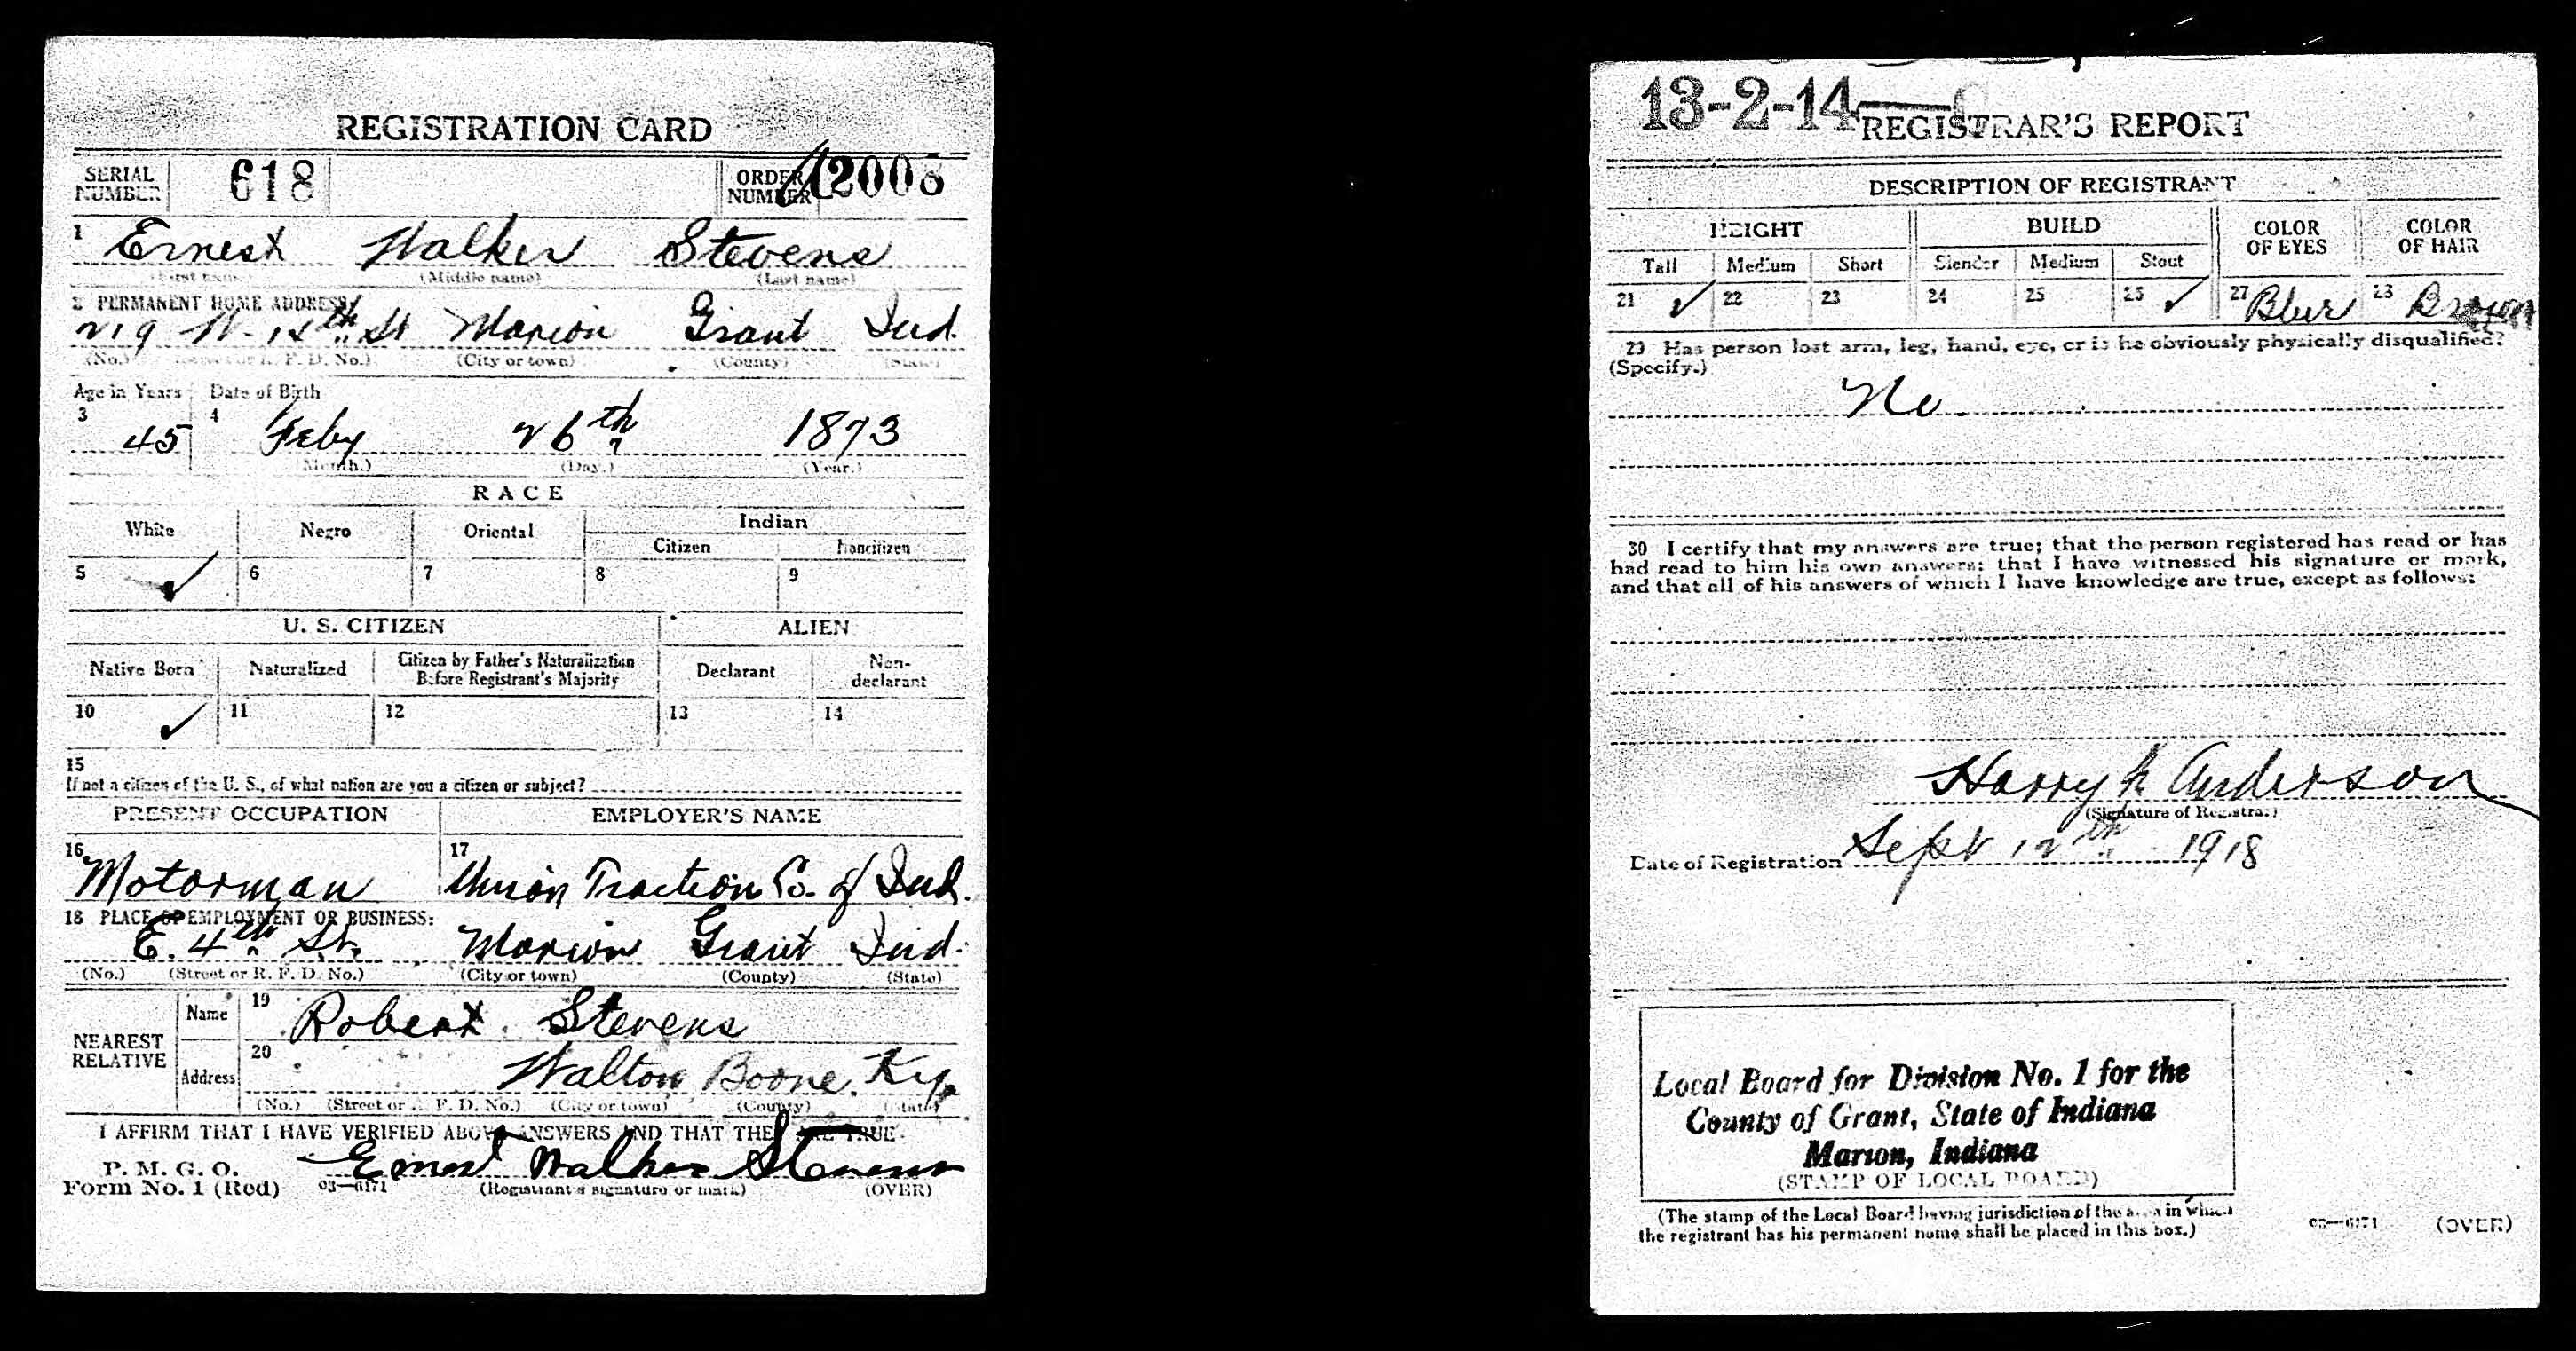 REGISTRATION CARD
SERIAL NUMBER 618 ORDER NUMBER A2008
1 Ernest Walker Stevens
(First name) (Middle name) (Last name)
2 PERMANENT HOME ADDRESS:
219 W. 12th St Marion Grant Ind.
(No.) (Street or R. F. D. No.) (City or town) (County) (State)
Age in Years Date of Birth
3 45 4 Feby 26th 1873
(Month.) (Day.) (Year.)
RACE
White Negro Oriental Indian
Citizen Noncitizen
5 ✓ 6 7 8 9
U. S. CITIZEN ALIEN
Native Born Naturalized Citizen by Father's Naturalization Before Registrant's Majority Declarant Non-declarant
10 ✓ 11 12 13 14
15
If not a citizen of the U. S., of what nation are you a citizen or subject?
PRESENT OCCUPATION EMPLOYER'S NAME
16 Motorman 17 Union Traction Co. of Ind.
18 PLACE OF EMPLOYMENT OR BUSINESS:
E. 4th St. Marion Grant Ind.
(No.) (Street or R. F. D. No.) (City or town) (County) (State)
NEAREST RELATIVE
Name 19 Robert Stevens
Address 20 Walton Boone. Ky.
(No.) (Street or R. F. D. No.) (City or town) (County) (State)
I AFFIRM THAT I HAVE VERIFIED ABOVE ANSWERS AND THAT THEY ARE TRUE
P. M. G. O.
Form No. 1 (Red) 03—6171 Ernest Walker Stevens
(Registrant's signature or mark) (OVER)
13-2-14—C
REGISTRAR'S REPORT
DESCRIPTION OF REGISTRANT
HEIGHT BUILD COLOR OF EYES COLOR OF HAIR
Tall Medium Short Slender Medium Stout
21 ✓ 22 23 24 25 26 ✓ 27 Blue 28 Brown
29 Has person lost arm, leg, hand, eye, or is he obviously physically disqualified?
(Specify.)
No.
30 I certify that my answers are true; that the person registered has read or has
had read to him his own answers; that I have witnessed his signature or mark,
and that all of his answers of which I have knowledge are true, except as follows:
Harry Anderson
(Signature of Registrar)
Date of Registration Sept 12th 1918
Local Board for Division No. 1 for the
County of Grant, State of Indiana
Marion, Indiana
(STAMP OF LOCAL BOARD)
(The stamp of the Local Board having jurisdiction of the area in which
the registrant has his permanent home shall be placed in this box.)
03—6171 (OVER)